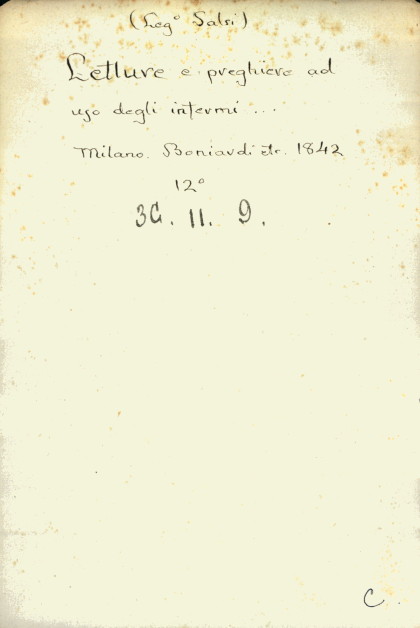 (Leg° Salsi)
Letture e preghiere ad
uso degli infermi ...
Milano. Boniardi etc. 1842
12°
3G. 11. 9.
C.